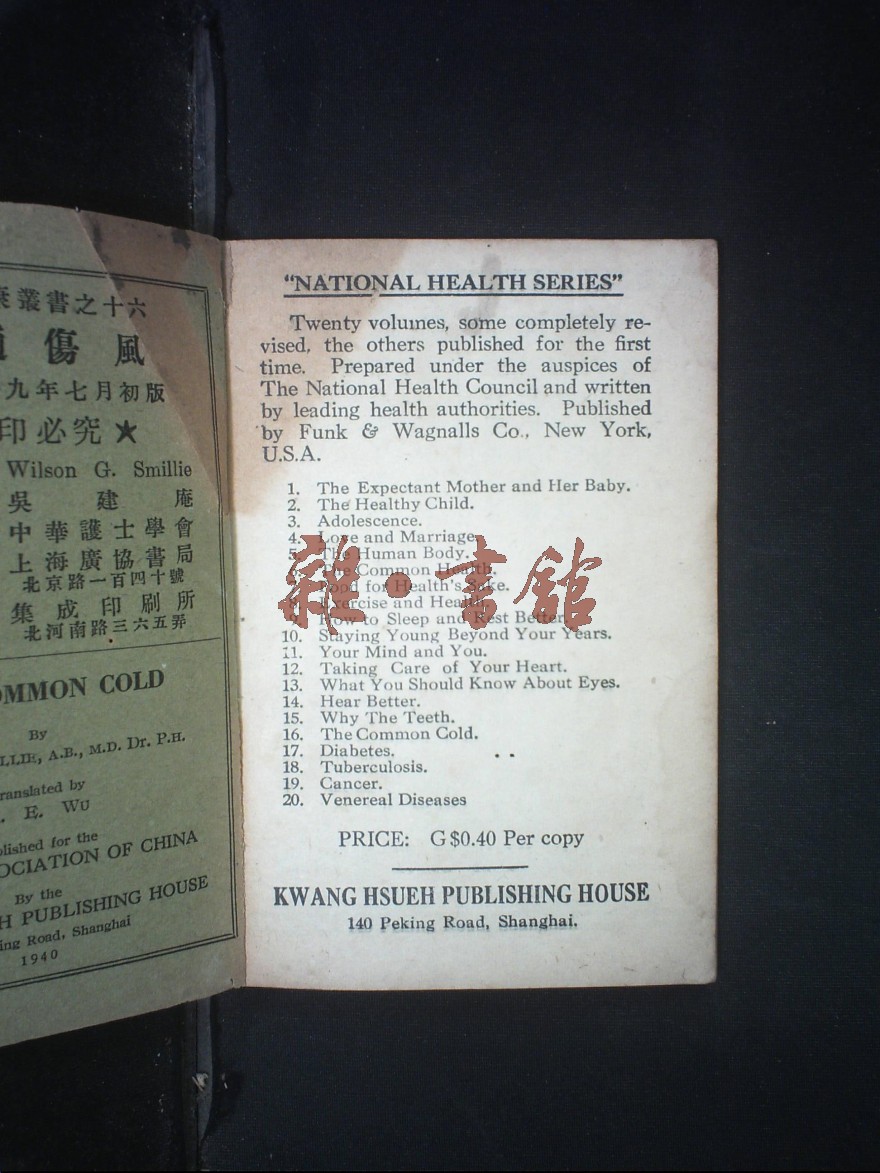 叢書之十六
傷風
九年七月初版
印必究★
Wilson G. Smillie
吳建庵
中華護士學會
上海廣協書局
北京路一百四十號
集成印刷所
北河南路三六五弄
OMMON COLD
By
LLIE, A.B., M.D. Dr. P.H.
ranslated by
E. WU
lished for the
OCIATION OF CHINA
By the
H PUBLISHING HOUSE
ing Road, Shanghai
1940
"NATIONAL HEALTH SERIES"
Twenty volumes, some completely re-
vised, the others published for the first
time. Prepared under the auspices of
The National Health Council and written
by leading health authorities. Published
by Funk & Wagnalls Co., New York,
U.S.A.
1. The Expectant Mother and Her Baby.
2. The Healthy Child.
3. Adolescence.
4. Love and Marriage.
5. The Human Body.
The Common Health.
Food for Health's Sake.
8. Exercise and Health.
How to Sleep and Rest Better.
10. Staying Young Beyond Your Years.
11. Your Mind and You.
12. Taking Care of Your Heart.
13. What You Should Know About Eyes.
14. Hear Better.
15. Why The Teeth.
16. The Common Cold.
17. Diabetes.
18. Tuberculosis.
19. Cancer.
20. Venereal Diseases
PRICE: G $0.40 Per copy
KWANG HSUEH PUBLISHING HOUSE
140 Peking Road, Shanghai.
雜·書館